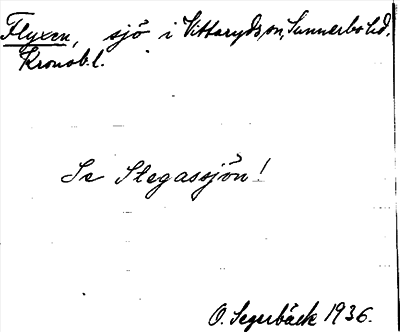 Flyxen, sjö i Vittaryds sn, Sunnerbo hd.
Kronob. l.
Se Stegassjön!
O. Segerbäck 1936.